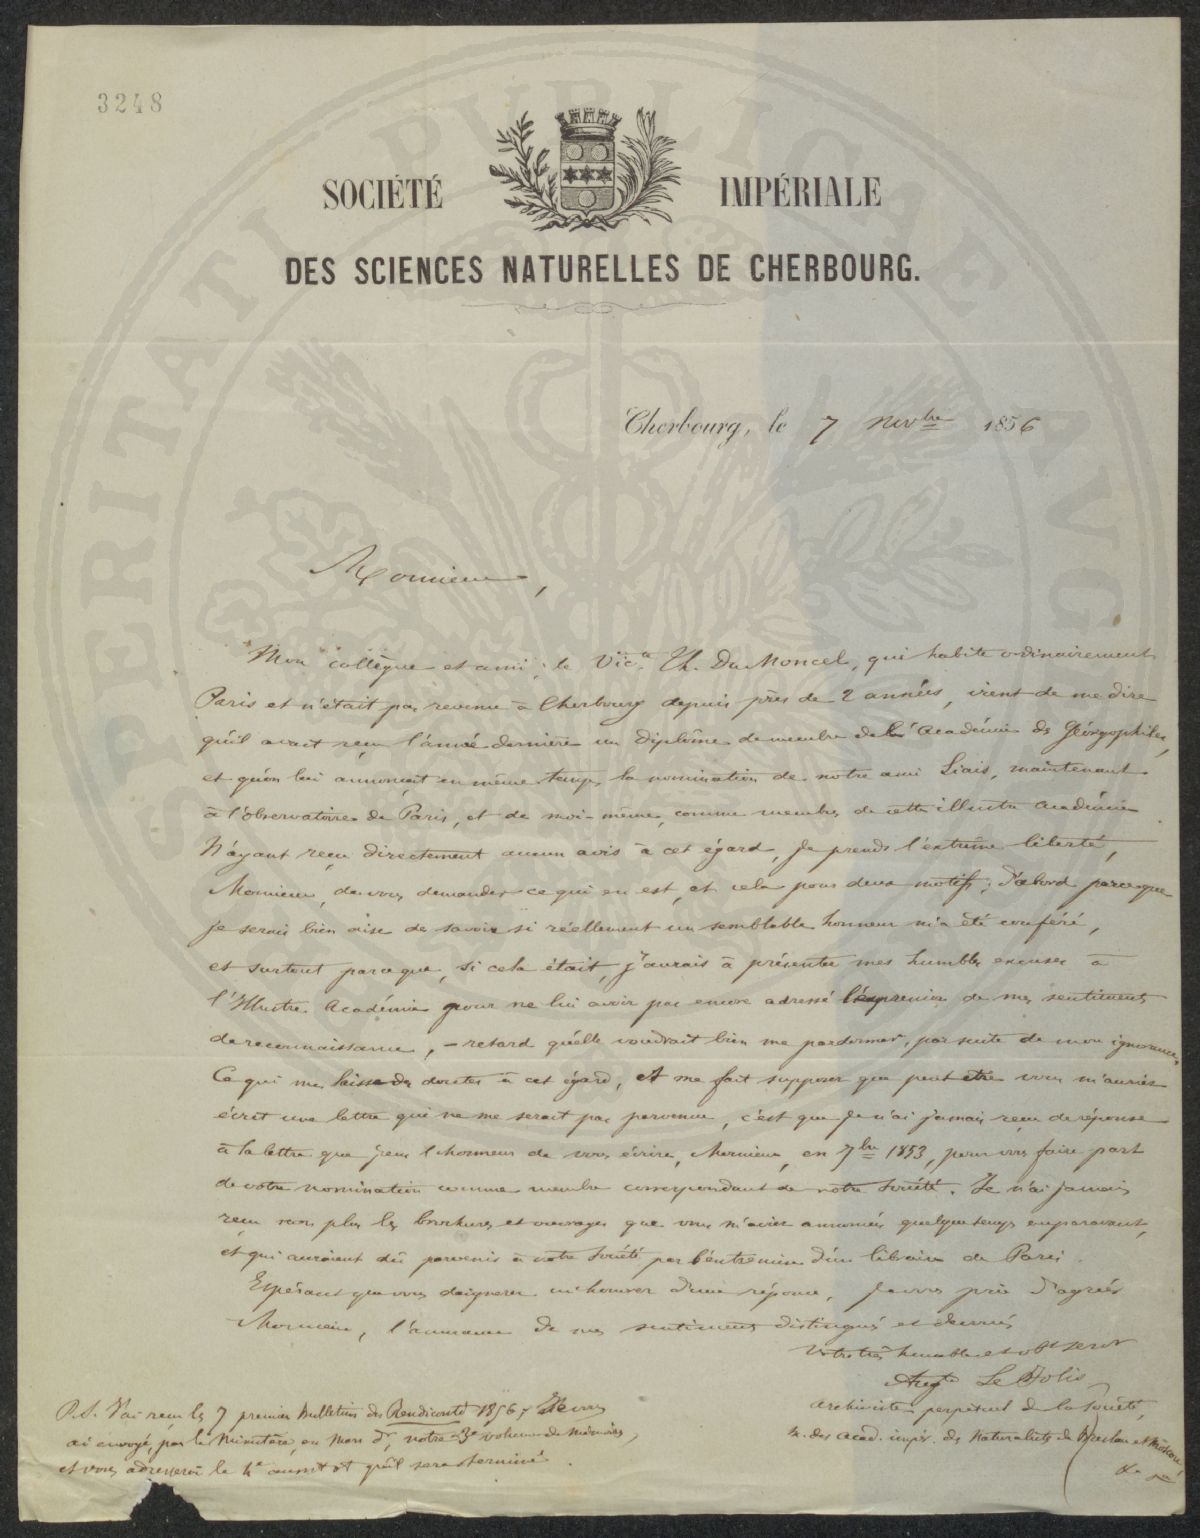 3248
SOCIÉTÉ IMPÉRIALE
DES SCIENCES NATURELLES DE CHERBOURG.
Cherbourg, le 7 novbre 1856
Monsieur,
Mon collègue et ami, le Victe Th. Du Moncel, qui habite ordinairement
Paris et n'était pas revenu à Cherbourg depuis près de 2 années, vient de me dire
qu'il avait reçu l'année dernière un diplôme de membre de l'Académie des Géorgophiles,
et qu'on lui annonçait en même temps la nomination de notre ami Liais, maintenant
à l'observatoire de Paris, et de moi-même, comme membres de cette illustre académie
N'ayant reçu directement aucun avis à cet égard, je prends l'extrême liberté,
Monsieur, de vous demander ce qui en est, et cela pour deux motifs; d'abord parce que
je serais bien aise de savoir si réellement un semblable honneur m'a été conféré,
et surtout parce que, si cela était, j'aurais à présenter mes humbles excuses à
l'Illustre Académie pour ne lui avoir pas encore adressé l'expression de mes sentiments
de reconnaissance, - retard qu'elle voudrait bien me pardonner, par suite de mon ignorance
Ce qui me laisse des doutes à cet égard, et me fait supposer que peut être vous m'auriez
écrit une lettre qui ne me serait pas parvenue, c'est que je n'ai jamais reçu de réponse
à la lettre que j'eus l'honneur de vous écrire, Monsieur, en 7bre 1853, pour vous faire part
de votre nomination comme membre correspondant de notre Société. Je n'ai jamais
reçu non plus les brochures et ouvrages que vous m'aviez annoncés quelque temps auparavant,
et qui auraient dû parvenir à notre Société par l'entremise d'un libraire de Paris.
Espérant que vous daignerez m'honorer d'une réponse, je vous prie d'agréer
Monsieur, l'assurance de mes sentiments distingués et dévoués
Votre très humble et obt servr
Augte Le Jolis
archiviste perpétuel de la Société,
m. des Acad. impér. des Naturalistes de Breslau et Moscou,
&a &a
P.S. J'ai reçu les 7 premiers Bulletins des Rendiconti 1856; Je vous
ai envoyé, par le Ministère, en Mars dr, notre 3e volume de Mémoires,
et vous adresserai le 4e aussitôt qu'il sera terminé.